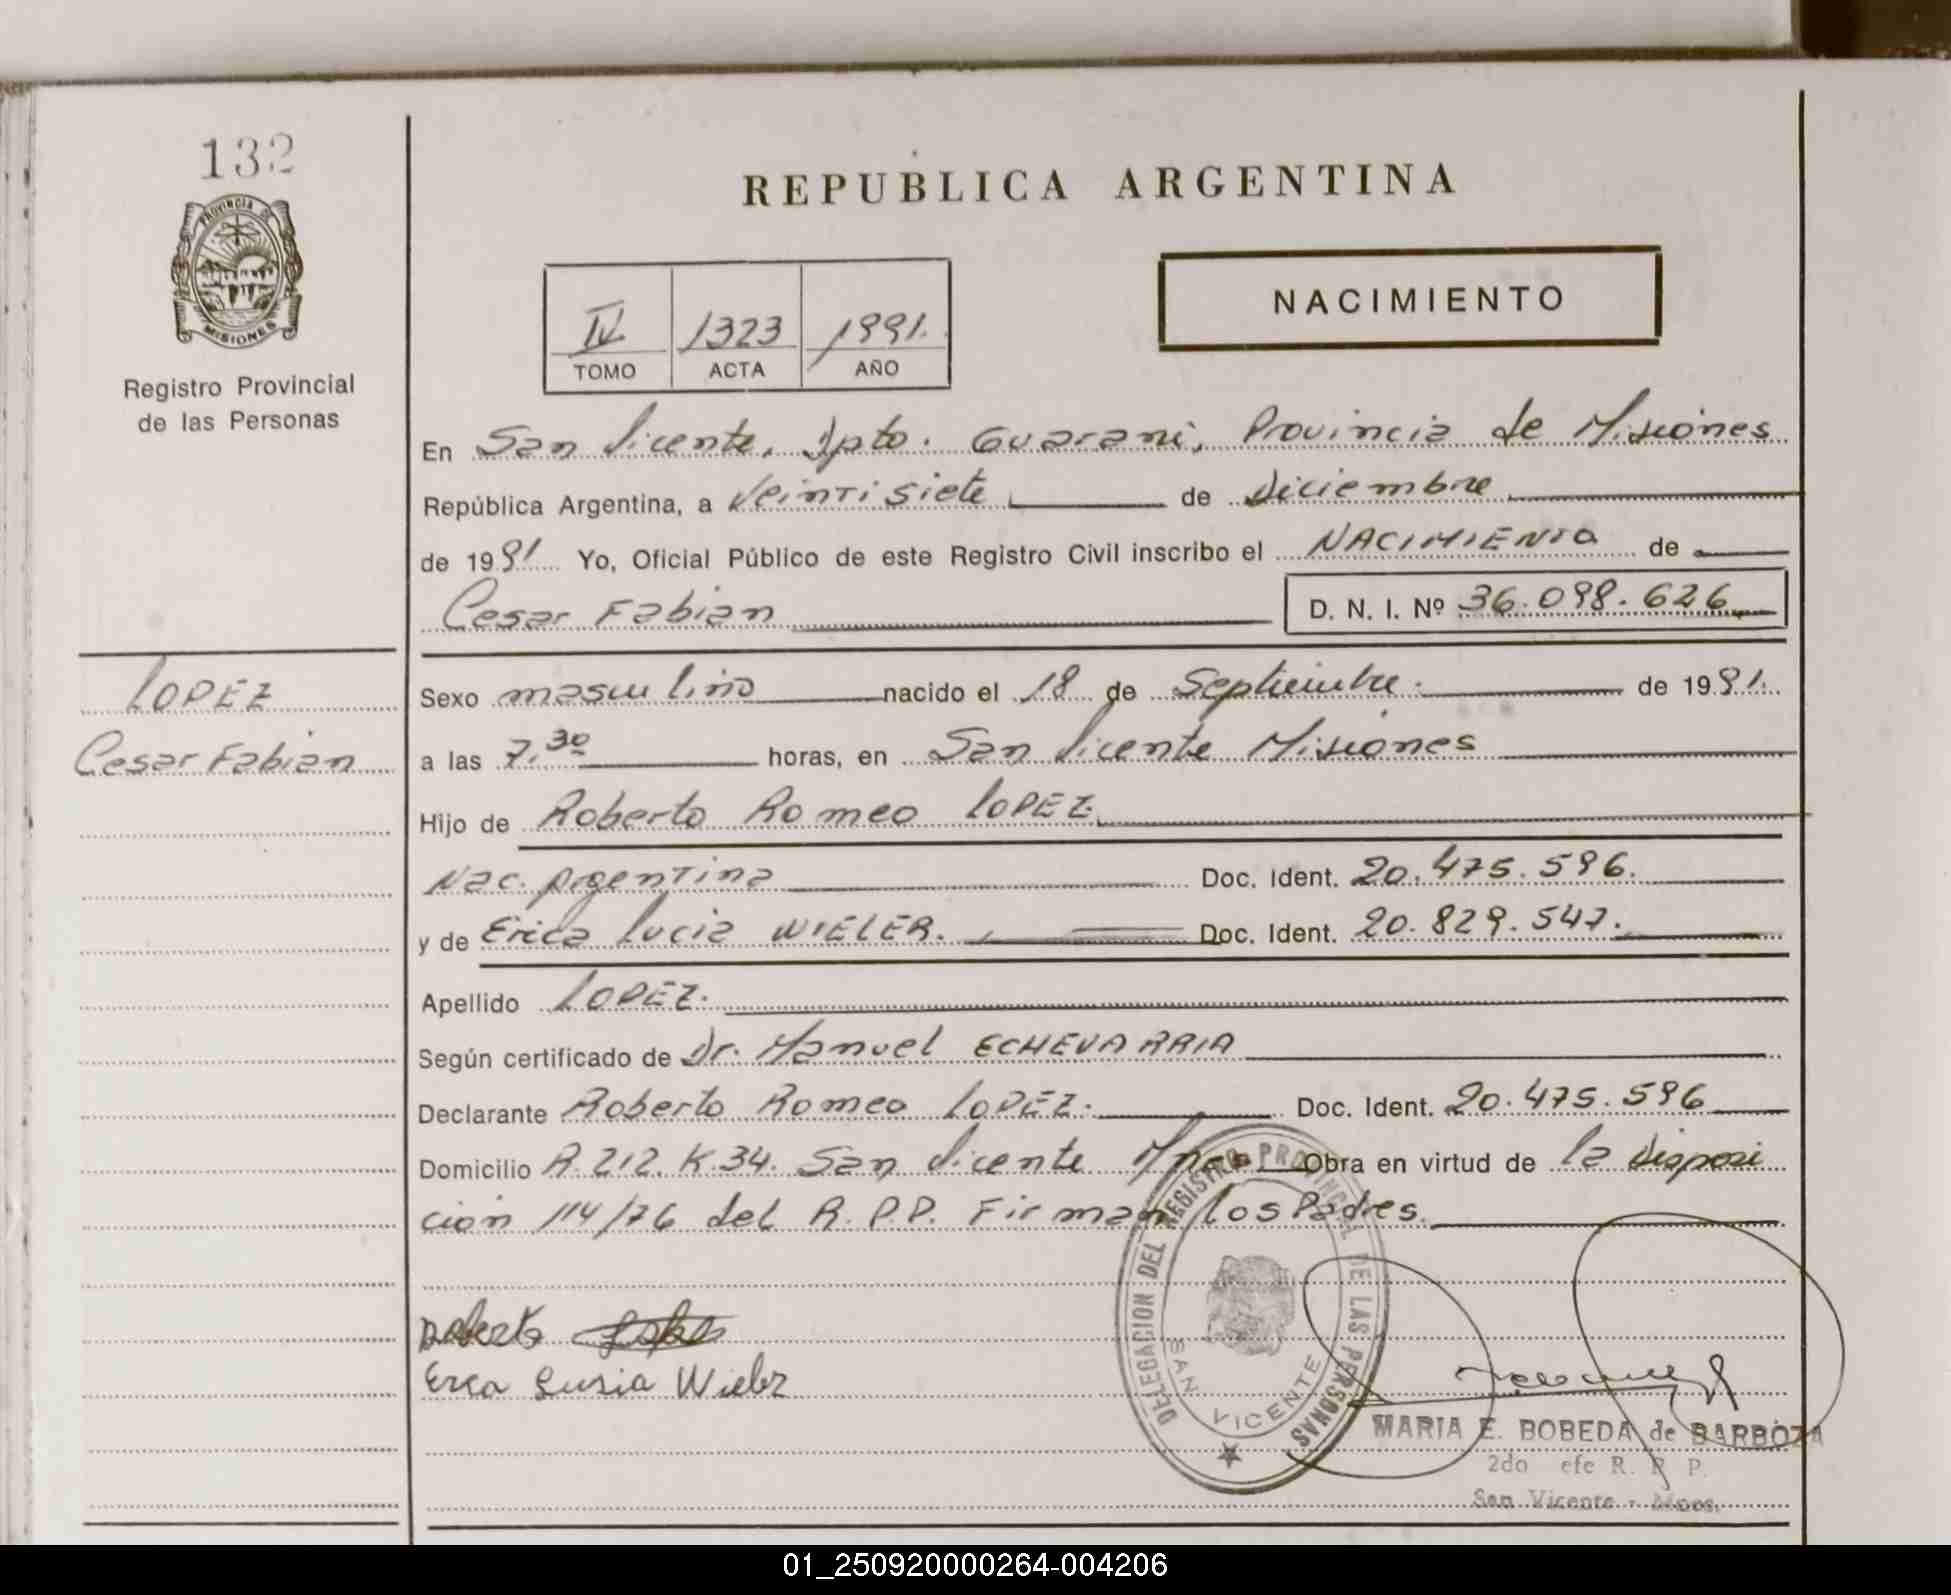 132
PROVINCIA DE
MISIONES
Registro Provincial
de las Personas
REPUBLICA ARGENTINA
IV 1323 1991.
TOMO ACTA AÑO
NACIMIENTO
En San Vicente, Dpto. Guarani, Provincia de Misiones
República Argentina, a Veintisiete de Diciembre
de 1991 Yo, Oficial Público de este Registro Civil inscribo el NACIMIENTO de
Cesar Fabian D. N. I. Nº 36.098.626
LOPEZ
Cesar Fabian
Sexo masculino nacido el 18 de Septiembre. de 1991.
a las 7.30 horas, en San Vicente Misiones
Hijo de Roberto Romeo LOPEZ.
Nac. Argentina Doc. Ident. 20.475.596.
y de Erica Lucia WIELER. Doc. Ident. 20.829.547.
Apellido LOPEZ.
Según certificado de Dr. Manuel ECHEVARRIA
Declarante Roberto Romeo LOPEZ. Doc. Ident. 20.475.596
Domicilio R.212. K.34. San Vicente Mnes. Obra en virtud de la disposi
cion 114/76 del R.P.P. Firman los Padres.
DELEGACION DEL REGISTRO PROVINCIAL DE LAS PERSONAS
SAN VICENTE
Roberto
Erca Lusia Wieler
MARIA E. BOBEDA de BARBOZA
2do efe R. P. P.
San Vicente - Mnes.
01_250920000264-004206